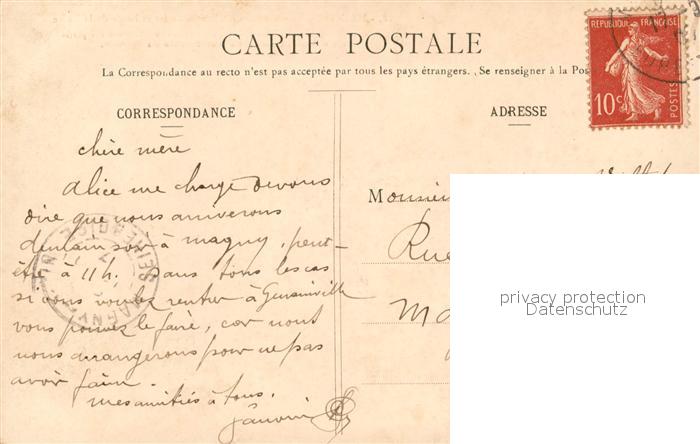 CARTE POSTALE
La Correspondance au recto n'est pas acceptée par tous les pays étrangers. Se renseigner à la Pos
RÉPUBLIQUE FRANÇAISE
10c
POSTES
CORRESPONDANCE
ADRESSE
chère mère
Alice me charge de vous
dire que nous arriverons
demain soir à magny, peut-
être à 11h. Dans tous les cas
si vous voulez rentrer à Genainville
vous pouvez le faire, car nous
nous arrangerons pour ne pas
avoir faim.
mes amitiés à tous.
Monsieu
Rue
Ma
privacy protection
Datenschutz